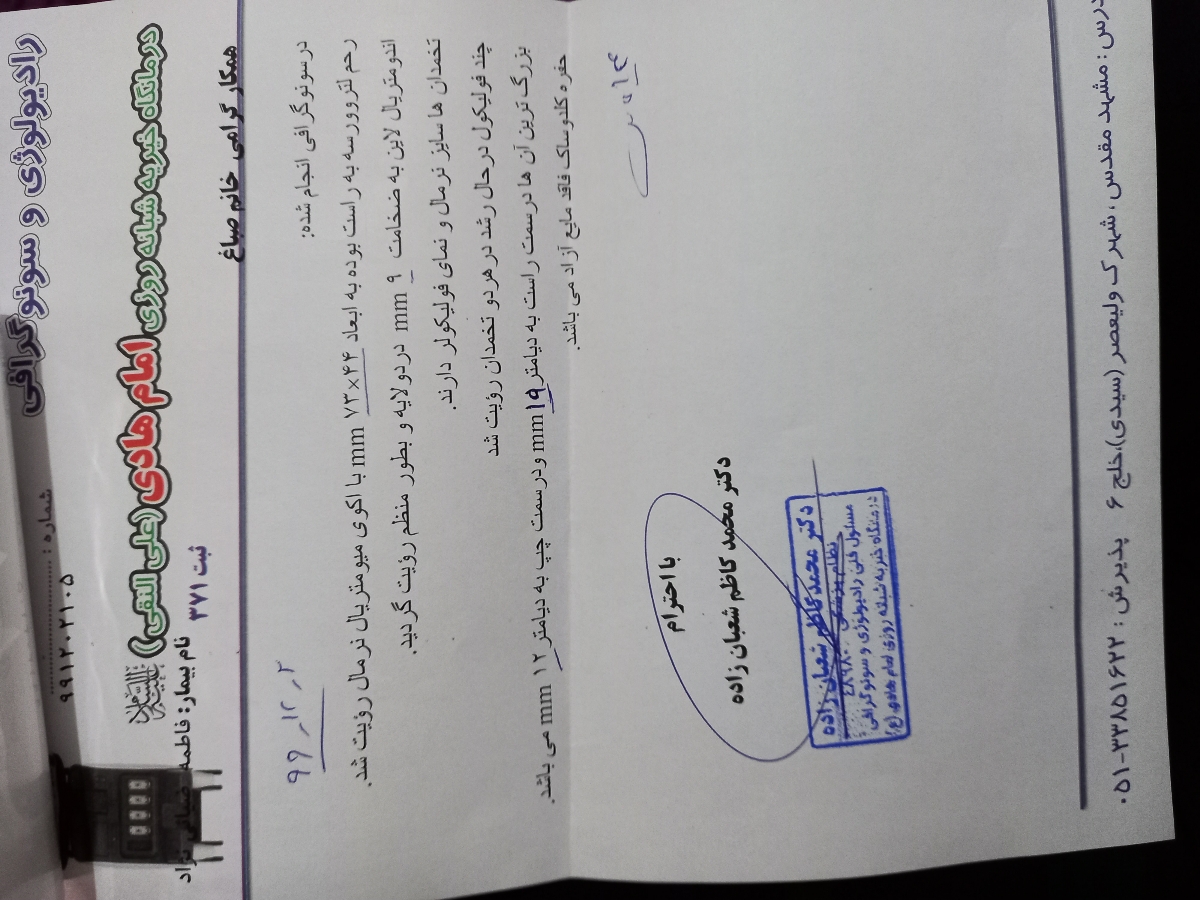 رادیولوژی و سونوگرافی
شماره :
۹۹۱۲۰۲۱۰۵
درمانگاه خیریه شبانه روزی امام هادی (علی النقی)
ثبت ۳۷۱
نام بیمار: فاطمه
همکار گرامی خانم صباغ
۹۹ ـ ۱۲ ـ ۲
در سونوگرافی انجام شده:
رحم لترورسه به راست بوده به ابعاد ۴۴×۷۳ mm با اکوی میومتریال نرمال رؤیت شد.
اندومتریال لاین به ضخامت ۹ mm در دو لایه و بطور منظم رؤیت گردید.
تخمدان ها سایز نرمال و نمای فولیکولر دارند.
چند فولیکول در حال رشد در هر دو تخمدان رؤیت شد
بزرگ ترین آن ها در سمت راست به دیامتر ۱۹ mm و در سمت چپ به دیامتر ۱۲ mm می باشد.
حفره کلدوساک فاقد مایع آزاد می باشد.
با احترام
دکتر محمد کاظم شعبان زاده
دکتر محمد کاظم شعبان زاده
مسئول فنی رادیولوژی و سونوگرافی
درمانگاه خیریه شبانه روزی امام هادی (ع)
درس : مشهد مقدس ، شهرک ولیعصر (سیدی)،خلج ۶ پذیرش : ۳۳۸۵۱۶۲۲-۰۵۱